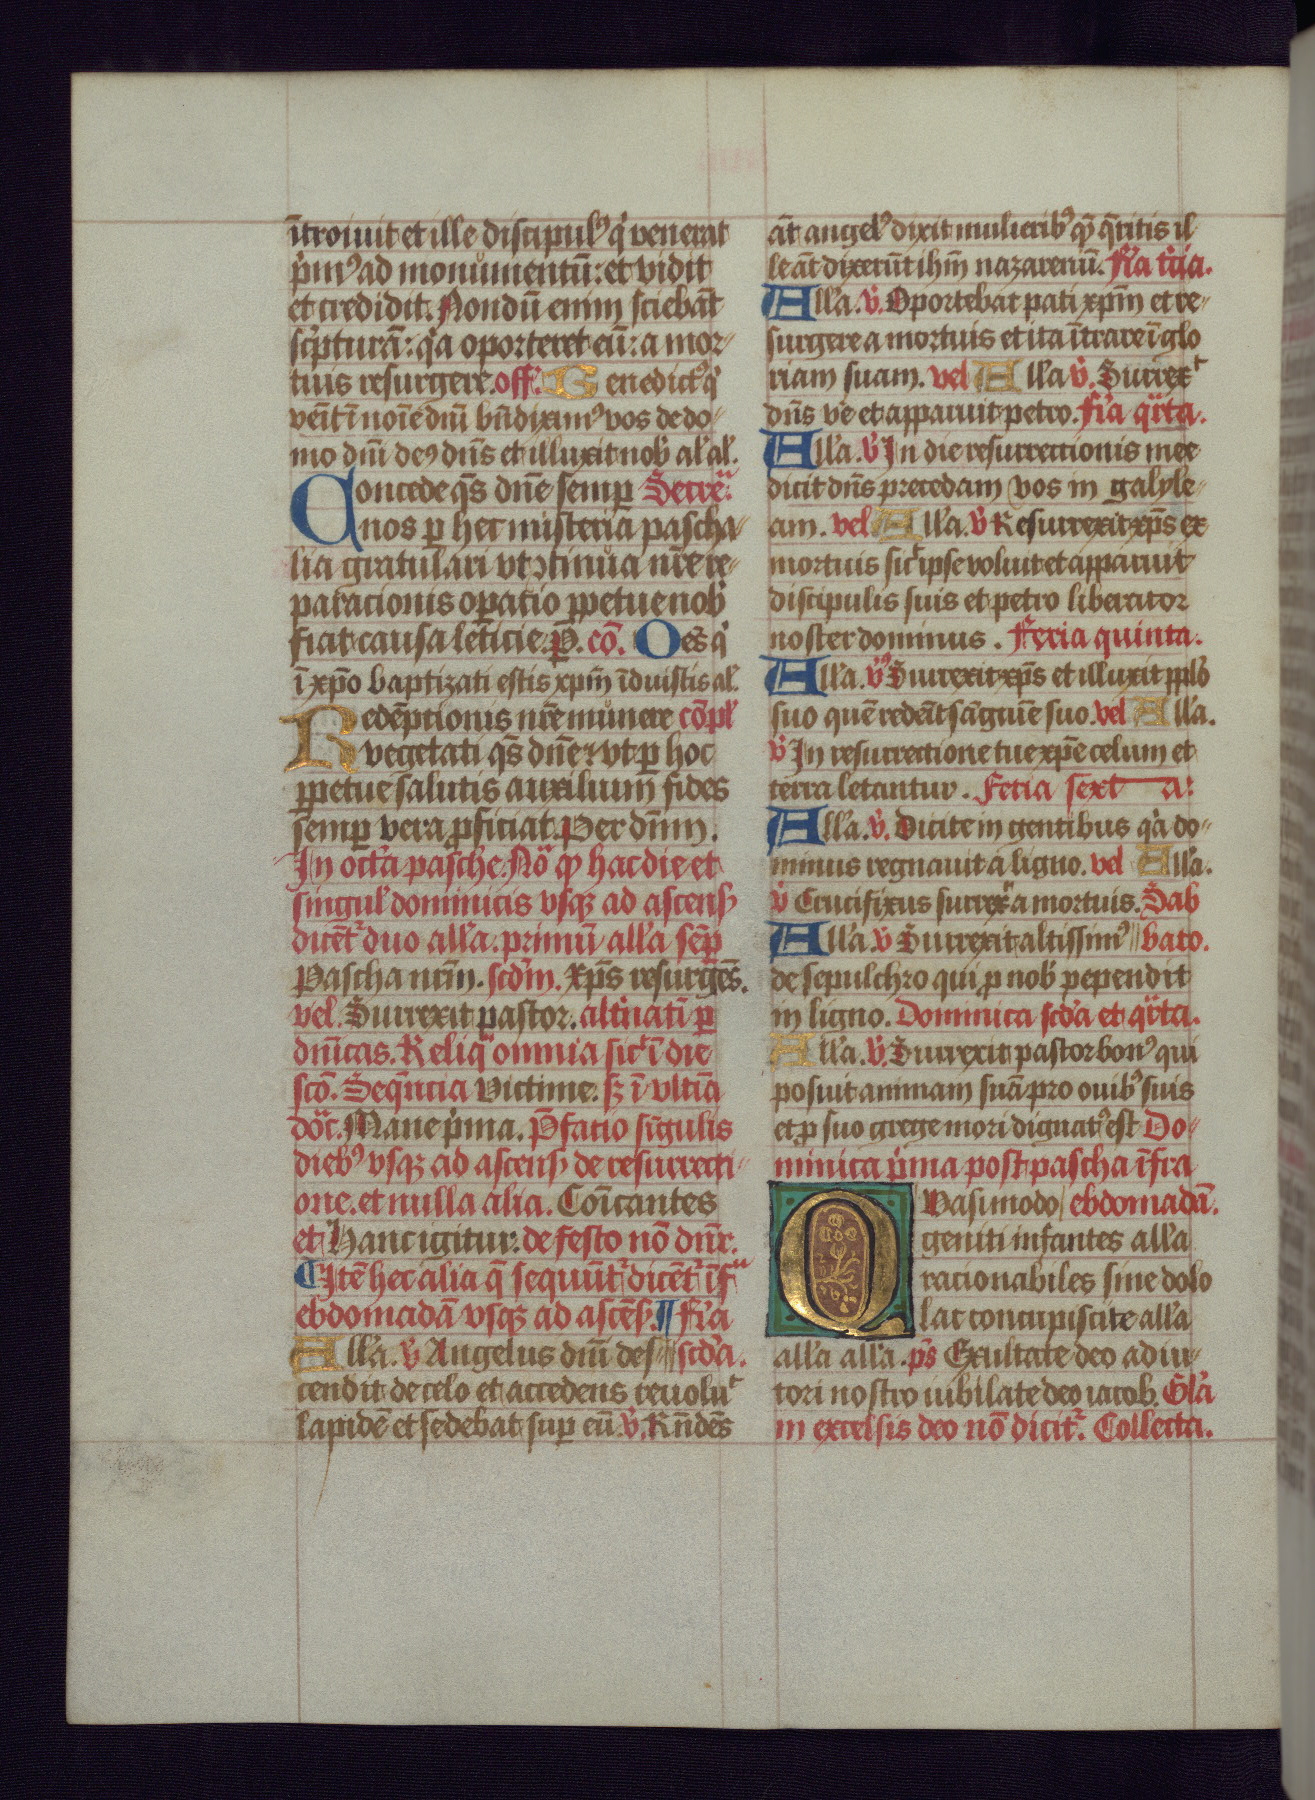 ītroiuit et ille discipulꝰ qͥ venerat
pͥmꝰ ad monumentū: et vidit
et credidit. Nondū enim sciebāt
scͥpturā: qͥa oporteret eū: a mor-
tuis resurgere. off. Benedictꝰ qͥ
venͥt ī noīe dn̄i bn̄diximꝰ vos de do-
mo dn̄i deꝰ dn̄s et illuxit nob̄ al̄ al̄.
Concede qs̄ dn̄e semꝑ Secre.ͣ
nos ꝑ hec misteria pascha-
lia gratulari vt ꝯtinua nr̄e re-
paracionis oꝑatio ꝑpetue nob̄
fiat causa leticie. P̄. cō. Oēs qͥ
ī xp̄o baptizati estis xpm̄ īduistis al̄.
Redēptionis nr̄e munere cōpl̄
vegetati qs̄ dn̄e: vt ꝑ hoc
ꝑpetue salutis auxilium fides
semꝑ vera ꝓficiat. Per dn̄m.
In octa pasche. Noͣ ꝙ hac die et
singul̄ dominicis vsqꝫ ad ascens̄
dicēt̉ duo all̄a. primū all̄a semꝑ
Pascha nrm̄. scdm̄. Xp̄s resurgēs.
vel. Surrexit pastor. alt̉natī ꝑ
dn̄icas. Reliqͣ omnia sic̄ ī die
scō. Seq̄ncia Victime. sꝫ ī vltīa
doīc̄. Mane pͥma. P̄fatio sīgulis
diebꝰ vsqꝫ ad ascens̄ de resurrecti-
one. et nulla alia. Coīcantes
et Hanc igitur. de festo nō dn̄r.
¶ Itē hec alia q̄ sequūt̉ dicēt̉ īfͣ
ebdomadā vsqꝫ ad ascēs̄. ¶ Fr̄ia
All̄a. v̄ Angelus dn̄i des- scd̄a.
cendit de celo et accedens reuolut̉
lapidē et sedebat suꝑ eū. v̄. Rn̄dēs
āt angel̄ꝰ dixit mulieribꝰ qͣ q̄ritis il
le āt dixerūt ihm̄ nazarenū. Fr̄ia t̉cia.
All̄a. v̄. Oportebat pati xpm̄ et re-
surgere a mortuis et ita ītrare ī glo
riam suam. vel All̄a v̄. Surrex̄t
dn̄s ve̅ et apparuit petro. fr̄ia qͣrta.
All̄a. v̄ In die resurrectionis mee
dicit dn̄s precedam vos in galyle-
am. vel All̄a. v̄ Resurrexit xp̄s ex
mortuis sic̄ ipse voluit et apparuit
discipulis suis et petro liberator
noster dominus. Feria quinta.
All̄a. v̄ Surrexit xp̄s et illuxit ppl̄o
suo quē redeīt sāguīe suo. vel All̄a.
v̄ In resurrectione tue xp̄e celum et
terra letantur. Feria sexta:
All̄a. v̄. Dicite in gentibus qͥa do-
minus regnauit a ligno. vel All̄a.
v̄ Crucifixus surrex̄ a mortuis. Sab
All̄a. v̄ Surrexit altissimꝰ bato.
de sepulchro qui ꝓ nob̄ pependit
in ligno. Dominica scd̄a et qͣrta.
All̄a. v̄. Surrexit pastor bonꝰ qui
posuit animam suā pro ouibꝰ suis
et ꝓ suo grege mori dignatꝰ est Do-
minica pͥma post pascha īfra
Quasimodo ebdomadā.
geniti infantes all̄a
racionabiles sine dolo
lac concupiscite all̄a
all̄a all̄a. ps̄ Exultate deo adiu-
tori nostro iubilate deo iacob. Gl̄a
in excelsis deo nō dicit̉. Collecta.